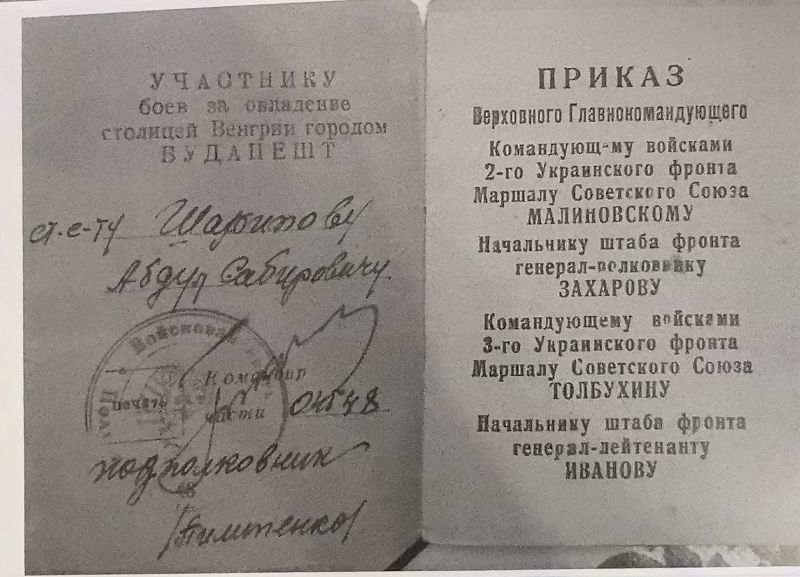 УЧАСТНИКУ
боев за овладение
столицей Венгрии городом
БУДАПЕШТ
ст. с-ту Шарипову
Абдул Сабировичу
Войсковая
печать
Командир
части
подполковник
ПРИКАЗ
Верховного Главнокомандующего
Командующ-му войсками
2-го Украинского фронта
Маршалу Советского Союза
МАЛИНОВСКОМУ
Начальнику штаба фронта
генерал-полковнику
ЗАХАРОВУ
Командующему войсками
3-го Украинского фронта
Маршалу Советского Союза
ТОЛБУХИНУ
Начальнику штаба фронта
генерал-лейтенанту
ИВАНОВУ